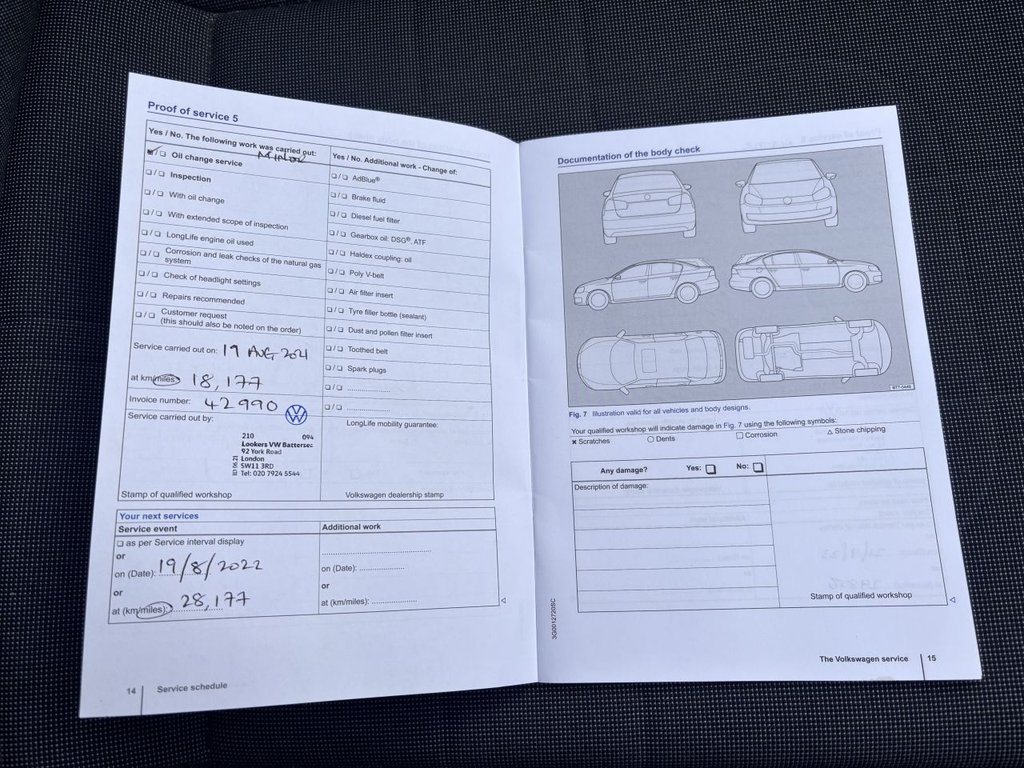 Proof of service 5
Yes / No. The following work was carried out:
MINOR
Oil change service
Inspection
With oil change
With extended scope of inspection
LongLife engine oil used
Corrosion and leak checks of the natural gas
system
Check of headlight settings
Repairs recommended
Customer request
(this should also be noted on the order)
Service carried out on: 19 AUG 2021
at km/miles: 18,177
Invoice number: 42990
Service carried out by:
210 094
Lookers VW Battersec
92 York Road
London
SW11 3RD
Tel: 020 7924 5544
Stamp of qualified workshop
Yes / No. Additional work - Change of:
AdBlue®
Brake fluid
Diesel fuel filter
Gearbox oil: DSG®, ATF
Haldex coupling: oil
Poly V-belt
Air filter insert
Tyre filler bottle (sealant)
Dust and pollen filter insert
Toothed belt
Spark plugs
LongLife mobility guarantee:
Volkswagen dealership stamp
Your next services
Service event
as per Service interval display
or
on (Date): 19/8/2022
or
at (km/miles): 28,177
Additional work
on (Date):
or
at (km/miles):
14 Service schedule
Documentation of the body check
Fig. 7 Illustration valid for all vehicles and body designs.
Your qualified workshop will indicate damage in Fig. 7 using the following symbols:
× Scratches ○ Dents □ Corrosion △ Stone chipping
Any damage? Yes: No:
Description of damage:
Stamp of qualified workshop
3G0012720SC
The Volkswagen service 15